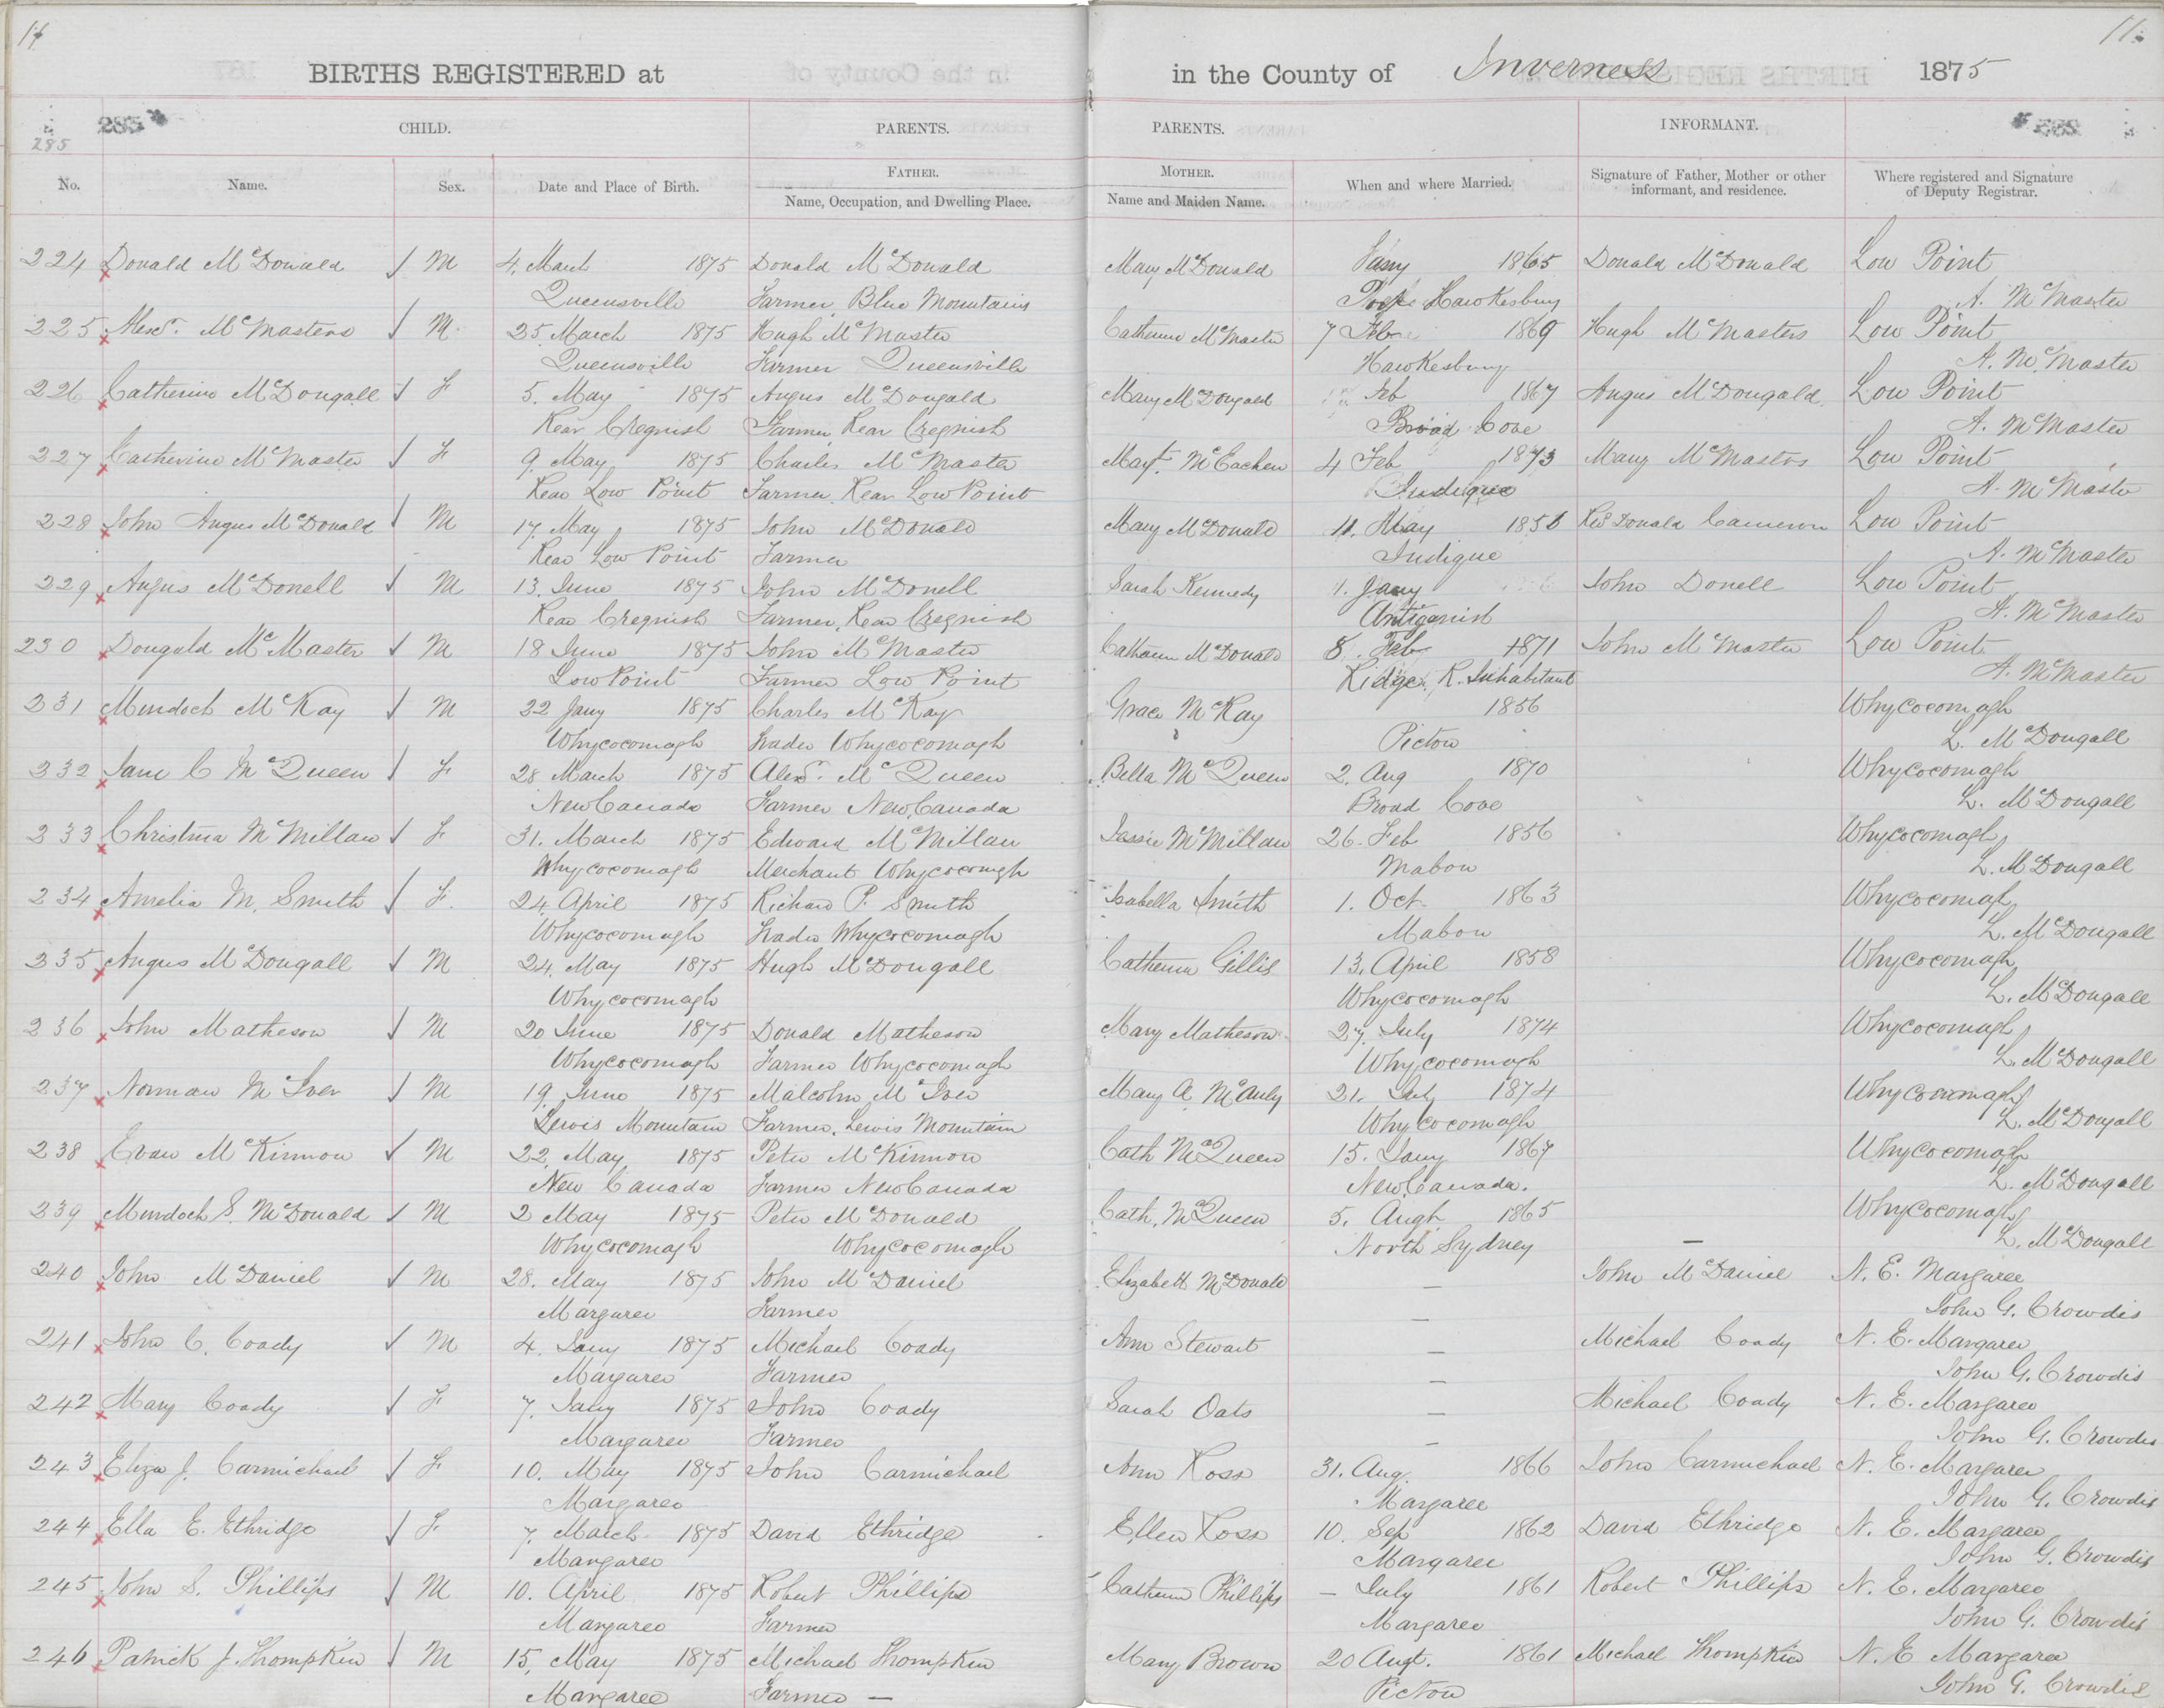 14
11
BIRTHS REGISTERED at in the County of Inverness 1875
285 285
CHILD. PARENTS. PARENTS. INFORMANT.
No. Name. Sex. Date and Place of Birth. FATHER. Name, Occupation, and Dwelling Place. MOTHER. Name and Maiden Name. When and where Married. Signature of Father, Mother or other informant, and residence. Where registered and Signature of Deputy Registrar.
224 Donald McDonald M 4, March 1875 Donald McDonald Mary McDonald Jany 1865 Donald McDonald Low Point
Queensville Farmer, Blue Mountains Hawkesbury A. McMaster
225 Alexr. McMasters M. 25. March 1875 Hugh McMaster Catherine McMaster 7 Feb 1869 Hugh McMasters Low Point
Queensville Farmer Queensville Hawkesbury A. McMaster
226 Catherine McDougall F 5. May 1875 Angus McDougald Mary McDougald Feb 1867 Angus McDougald Low Point
Rear Cregnish Farmer, Rear Cregnish Broad Cove A. McMaster
227 Catherine McMaster F 9. May 1875 Charles McMaster Mayt. McEachen 4 Feb 1873 Mary McMasters Low Point
Rear Low Point Farmer, Rear Low Point Judique A. McMaster
228 John Angus McDonald M 17. May 1875 John McDonald Mary McDonald 11. May Revd Donald Cameron Low Point
Rear Low Point Farmer Judique A. McMaster
229 Angus McDonell M 13. June 1875 John McDonell Sarah Kennedy 1. Jany John Donell Low Point
Rear Cregnish Farmer, Rear Cregnish Antigonish A. McMaster
230 Dougald McMaster M 18 June 1875 John McMaster Catherine McDonald 8. Feb 1871 John McMaster Low Point
Low Point Farmer Low Point Ridge, R. Inhabitant A. McMaster
231 Murdoch McKay M 22 Jany 1875 Charles McKay Grace McKay 1856 Whycocomagh
Whycocomagh Trader Whycocomagh Pictou L. McDougall
232 Jane C McQueen F 28 March 1875 Alexr. McQueen Bella McQueen 2. Aug 1870 Whycocomagh
New Canada Farmer New Canada Broad Cove L. McDougall
233 Christina McMillan F 31. March 1875 Edward McMillan Jessie McMillan 26. Feb 1856 Whycocomagh
Whycocomagh Merchant Whycocomagh Mabou L. McDougall
234 Amelia M. Smith F. 24. April 1875 Richard P. Smith Isabella Smith 1. Oct 1863 Whycocomagh
Whycocomagh Trader Whycocomagh Mabou L. McDougall
235 Angus McDougall M 24. May 1875 Hugh McDougall Catherine Gillis 13. April 1858 Whycocomagh
Whycocomagh Whycocomagh L. McDougall
236 John Matheson M 20 June 1875 Donald Matheson Mary Matheson 27. July 1874 Whycocomagh
Whycocomagh Farmer Whycocomagh Whycocomagh L. McDougall
237 Norman McIver M 19. June 1875 Malcolm McIver Mary A. McAuly 21. July 1874 Whycocomagh
Lewis Mountain Farmer, Lewis Mountain Whycocomagh L. McDougall
238 Evan McKinnon M 22, May 1875 Peter McKinnon Cath McQueen 15. Jany 1867 Whycocomagh
New Canada Farmer New Canada New Canada. L. McDougall
239 Murdoch S. McDonald M 2 May 1875 Peter McDonald Cath. McQueen 5. Augt. 1865 Whycocomagh
Whycocomagh Whycocomagh North Sydney — L. McDougall
240 John McDaniel M 28. May 1875 John McDaniel Elizabeth McDonald — John McDaniel N. E. Margaree
Margaree Farmer — John G. Crowdis
241 John C. Coady M 4. Jany 1875 Michael Coady Ann Stewart — Michael Coady N. E. Margaree
Margaree Farmer — John G. Crowdis
242 Mary Coady F 7. Jany 1875 John Coady Sarah Oats — Michael Coady N. E. Margaree
Margaree Farmer — John G. Crowdis
243 Eliza J. Carmichael F 10. May 1875 John Carmichael Ann Ross 31. Aug. 1866 John Carmichael N. E. Margaree
Margaree Margaree John G. Crowdis
244 Ella E. Ethridge F 7. March 1875 David Ethridge Ellen Ross 10. Sep 1862 David Ethridge N. E. Margaree
Margaree Margaree John G. Crowdis
245 John S. Phillips M 10. April 1875 Robert Phillips Catherine Phillips — July 1861 Robert Phillips N. E. Margaree
Margaree Farmer Margaree John G. Crowdis
246 Patrick J. Thompkin M 15, May 1875 Michael Thompkin Mary Brown 20 Augt. 1861 Michael Thompkin N. E Margaree
Margaree Farmer — Pictou John G. Crowdis